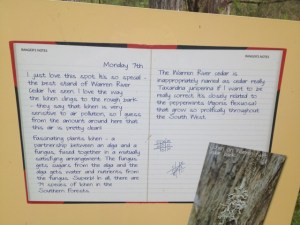 RANGER'S NOTES
Monday 7th
I just love this spot. It's so special -
the best stand of Warren River
Cedar I've seen. I love the way
the lichen clings to the rough bark
- they say that lichen is very
sensitive to air pollution, so I guess
from the amount around here that
this air is pretty clean!
Fascinating plants lichen - a
partnership between an alga and a
fungus, fused together in a mutually
satisfying arrangement. The fungus
gets sugars from the alga and the
alga gets water and nutrients from
the fungus. Superb! In all, there are
species of lichen in the
Southern Forests.
RANGER'S NOTES
The Warren River cedar is
inappropriately named as cedar really.
Taxandria juniperina if I want to be
really correct. It's closely related to
the peppermints (Agonis flexuosa)
that grow so prolifically throughout
the South West.